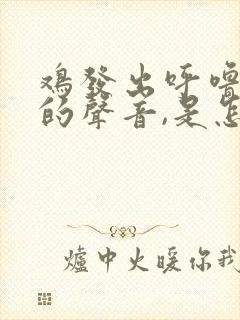 鸡發出呼噜
的聲音,是怎
爐中火暖你我